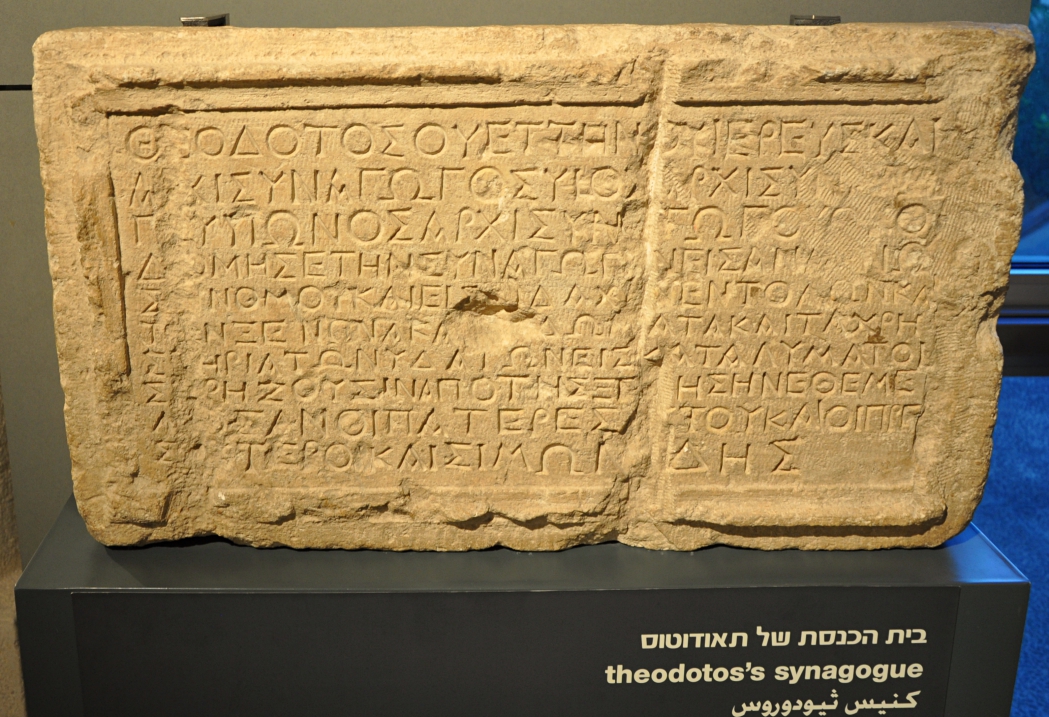 ΘΕΟΔΟΤΟΣ ΟΥΕΤΤΗΝΟΥ ΙΕΡΕΥΣ ΚΑΙ
ΑΡΧΙΣΥΝΑΓΩΓΟΣ ΥΙΟΣ ΑΡΧΙΣΥΝ
ΥΙΩΝΟΣ ΑΡΧΙΣΥΝΑΓΩΓΟΥ ΩΚΟ
ΔΟΜΗΣΕ ΤΗΝ ΣΥΝΑΓΩΓΗΝ ΕΙΣ
ΝΟΜΟΥ ΚΑΙ ΕΙΣ ΔΙΔΑΧΗΝ ΕΝΤΟΛΩΝ ΚΑΙ
ΤΟΝ ΞΕΝΩΝΑ ΚΑΙ ΔΩΜΑΤΑ ΚΑΙ ΤΑ ΧΡΗ
ΣΤΗΡΙΑ ΤΩΝ ΥΔΑΤΩΝ ΕΙΣ ΚΑΤΑΛΥΜΑ ΤΟΙ
Σ ΧΡΗΖΟΥΣΙΝ ΑΠΟ ΤΗΣ ΞΕΝΗΣ ΗΝ ΕΘΕΜΕ
ΛΙΩΣΑΝ ΟΙ ΠΑΤΕΡΕΣ ΑΥΤΟΥ ΚΑΙ ΟΙ ΠΡΕ
ΣΒΥΤΕΡΟΙ ΚΑΙ ΣΙΜΩΝΙΔΗΣ
בית הכנסת של תאודוטוס
theodotos's synagogue
كنيس ثيودوروس